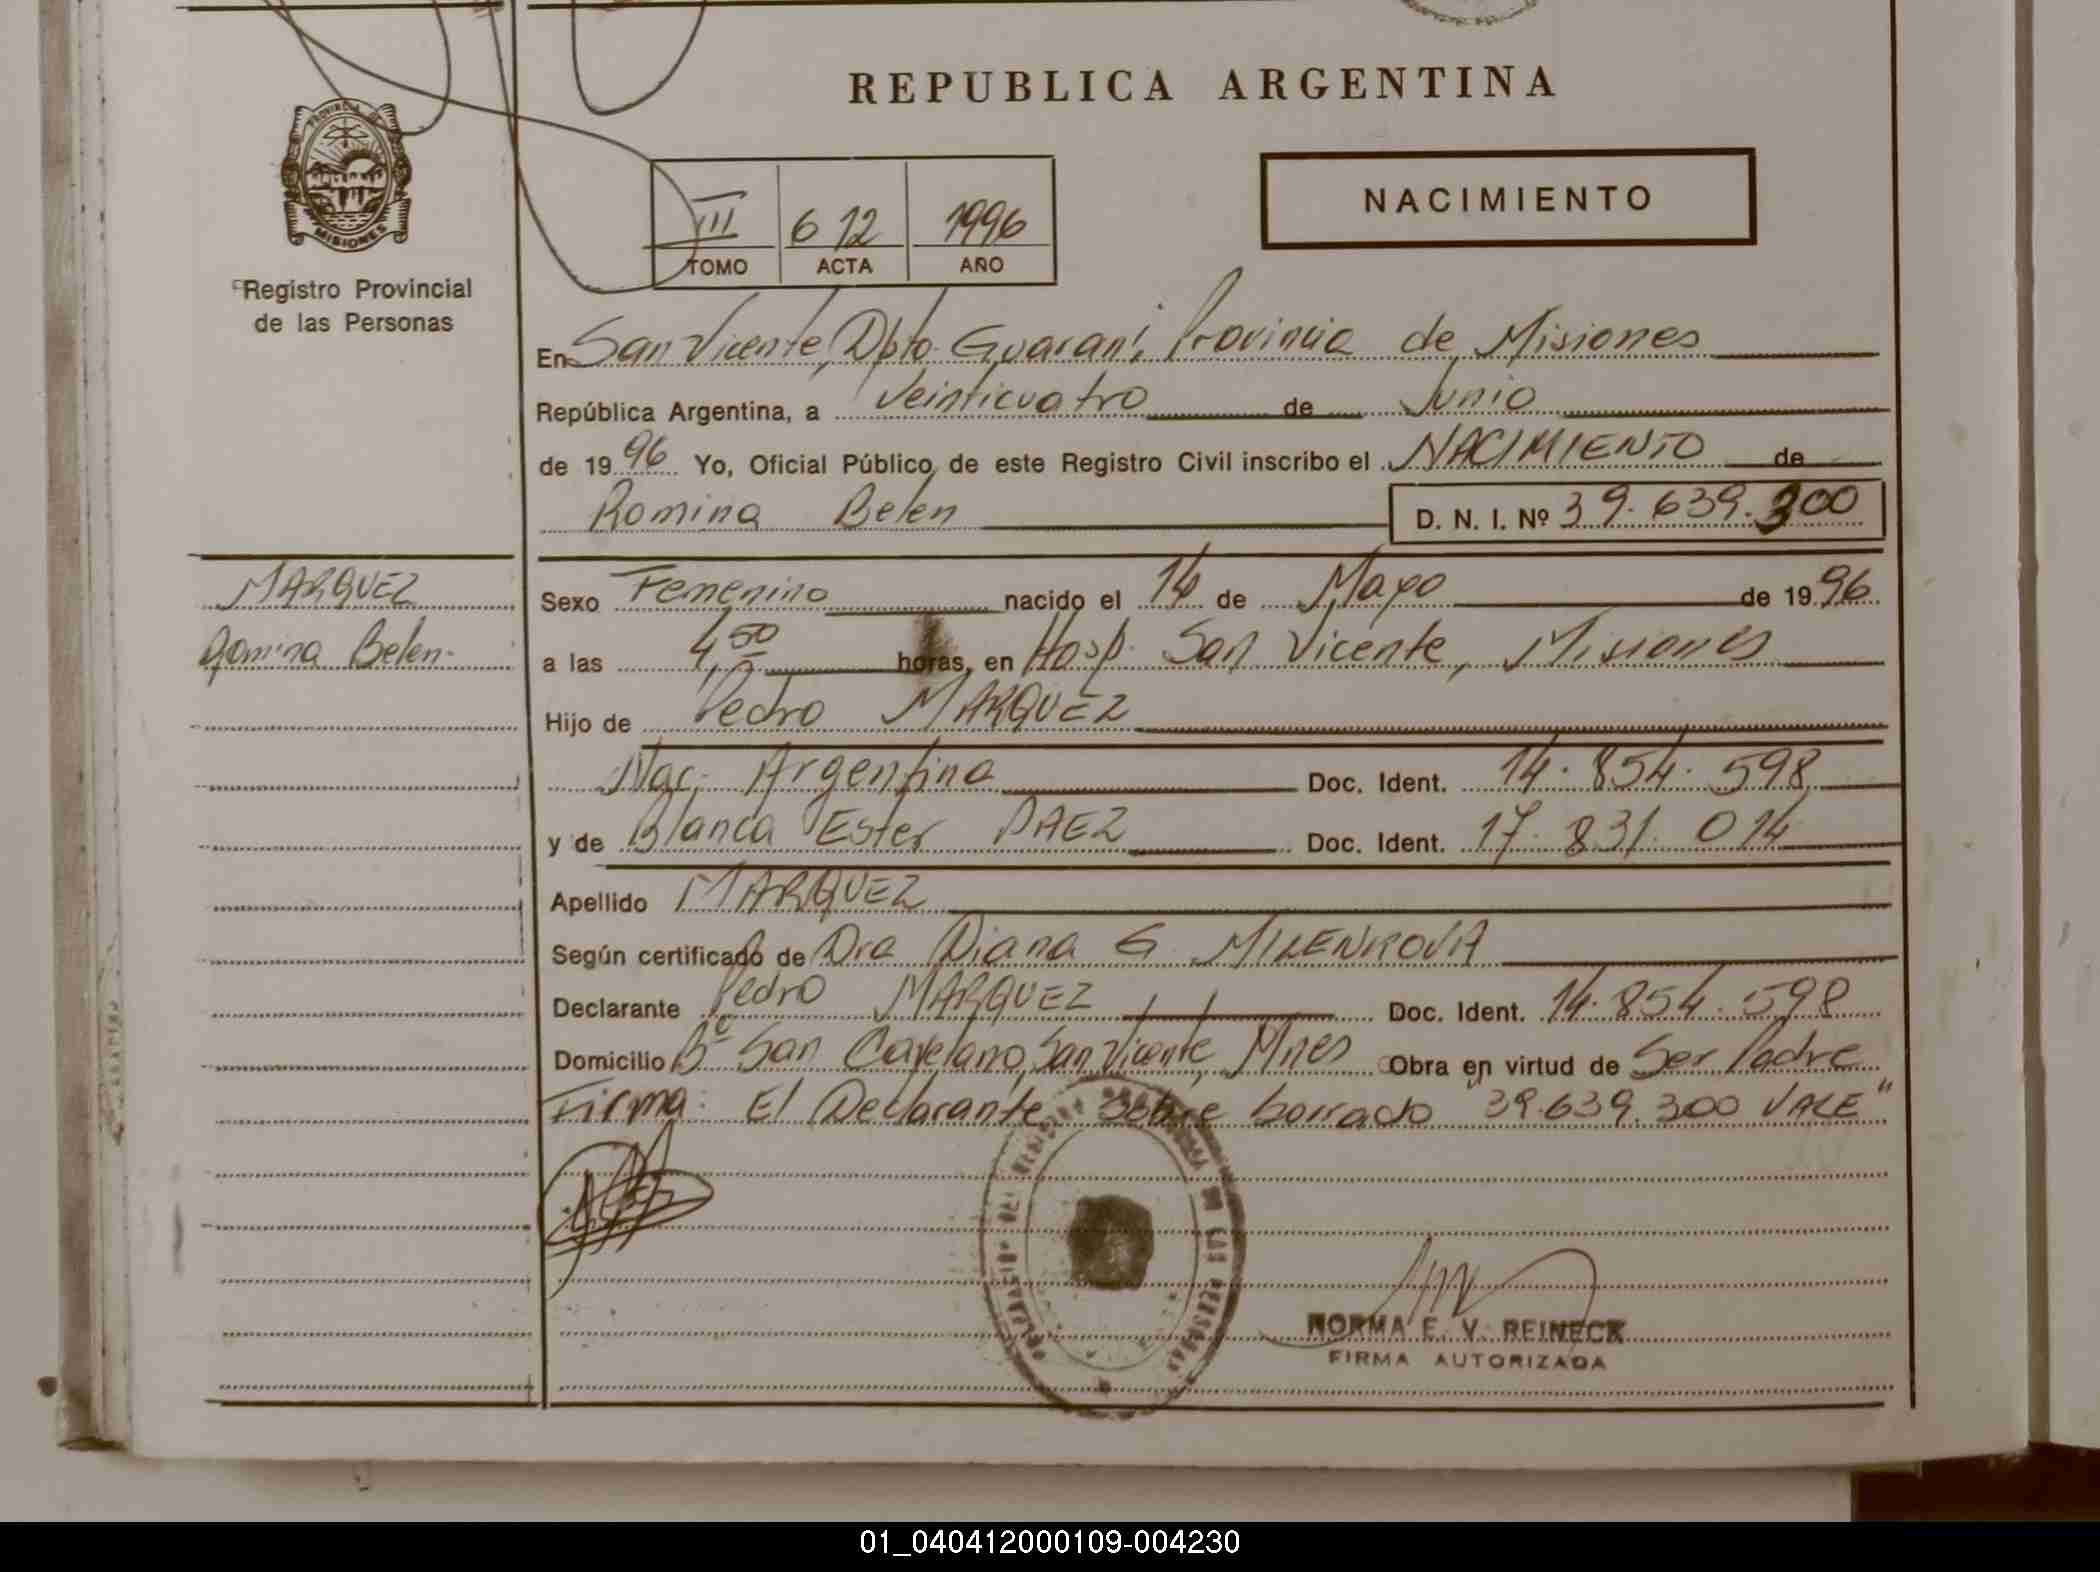 REPUBLICA ARGENTINA
PROVINCIA DE
MISIONES
Registro Provincial
de las Personas
III 612 1996
TOMO ACTA AÑO
NACIMIENTO
En San Vicente, Dpto. Guaraní, Provincia de Misiones
República Argentina, a Veinticuatro de Junio
de 1996 Yo, Oficial Público de este Registro Civil inscribo el NACIMIENTO de
Romina Belen D. N. I. Nº 39.639.300
MARQUEZ
Romina Belen
Sexo Femenino nacido el 14 de Mayo de 1996
a las 4,50 horas, en Hosp. San Vicente, Misiones
Hijo de Pedro MARQUEZ
Nac. Argentina Doc. Ident. 14.854.598
y de Blanca Ester PAEZ Doc. Ident. 17.831.014
Apellido MARQUEZ
Según certificado de Dra Diana G. MILENKOVA
Declarante Pedro MARQUEZ Doc. Ident. 14.854.598
Domicilio Bº San Cayetano, San Vicente, Mnes Obra en virtud de Ser Padre
Firma: El Declarante Sobre borrado "39.639.300 VALE"
NORMA E. V. REINECK
FIRMA AUTORIZADA
01_040412000109-004230